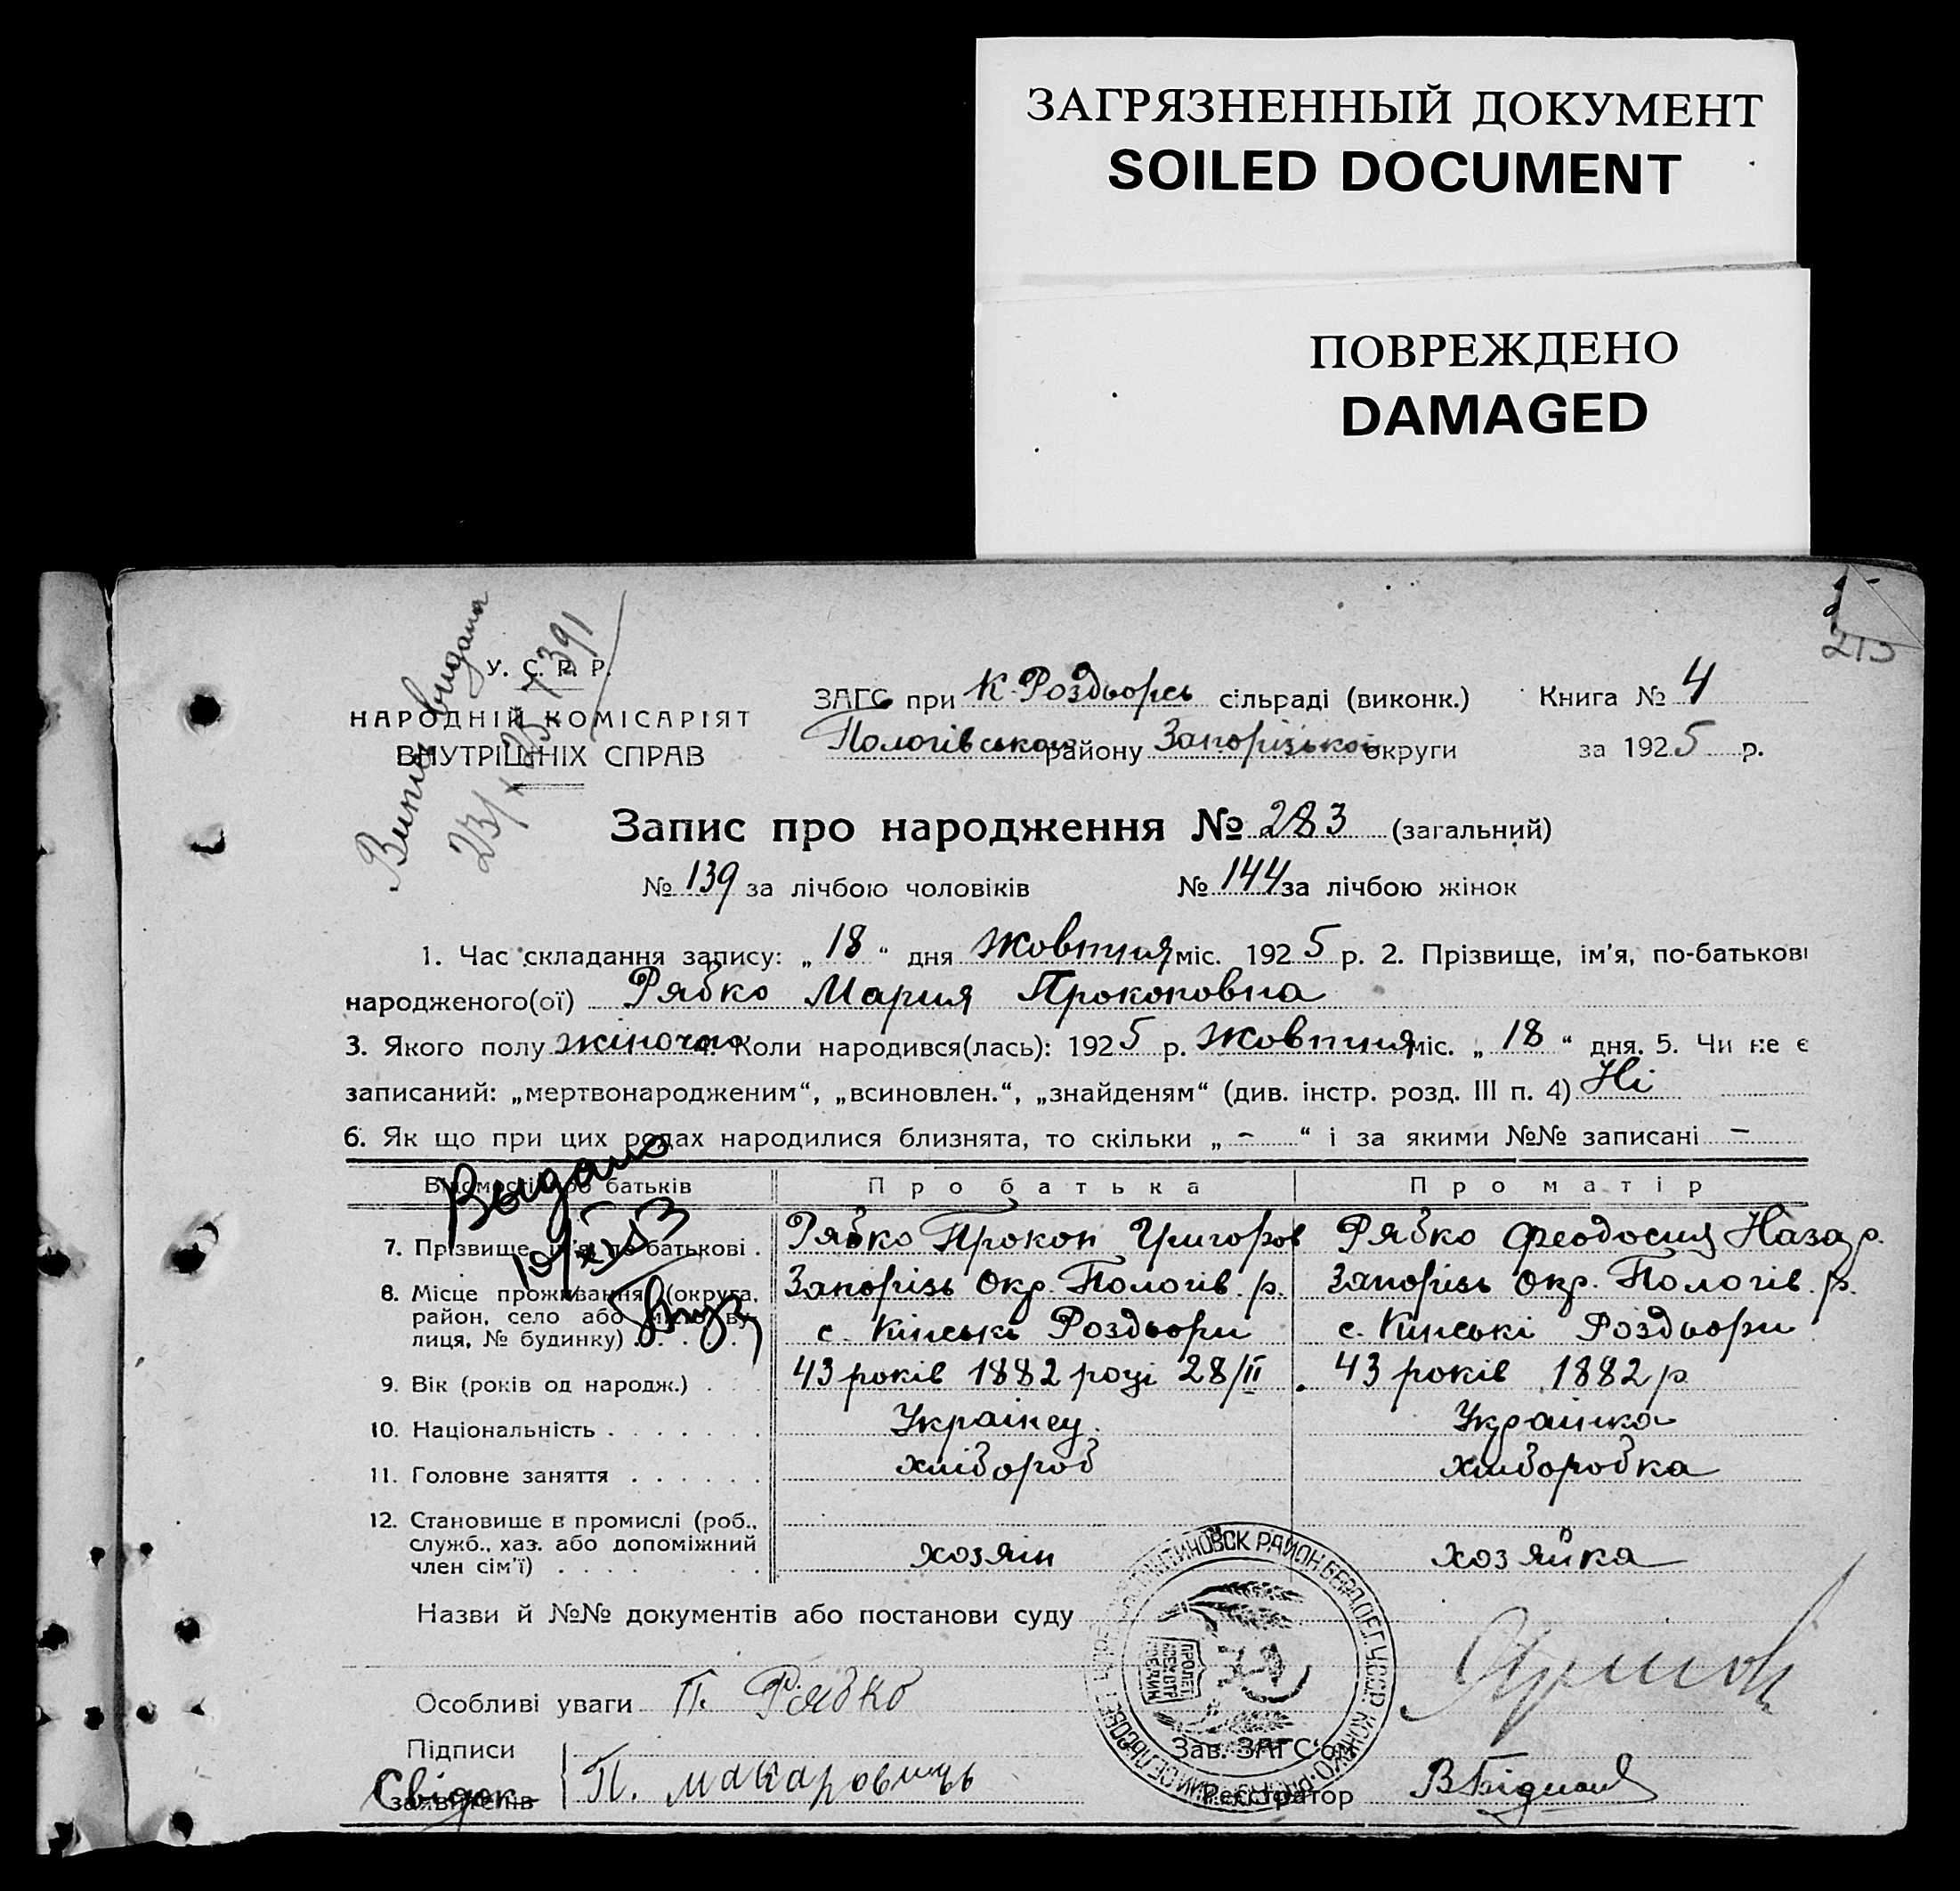 ЗАГРЯЗНЕННЫЙ ДОКУМЕНТ
SOILED DOCUMENT
ПОВРЕЖДЕНО
DAMAGED
213
У. С. Р. Р.
НАРОДНІЙ КОМІСАРІЯТ
ВНУТРІШНІХ СПРАВ
видана
ЗАГС при К-Роздорсь сільраді (виконк.) Книга № 4
Пологівського району Запорізької округи за 1925 р.
Запис про народження № 283 (загальний)
№ 139 за лічбою чоловіків № 144 за лічбою жінок
1. Час складання запису: „ 18 “ дня Жовтня міс. 1925 р. 2. Прізвище, ім'я, по-батькові
народженого(ої) Рябко Мария Прокоповна
3. Якого полу жіночого 4. Коли народився(лась): 1925 р. Жовтня міс. „ 18 “ дня. 5. Чи не є
записаний: „мертвонародженим“, „всиновлен.“, „знайденям“ (див. інстр. розд. III п. 4) Ні
6. Як що при цих родах народилися близнята, то скільки „ - “ і за якими №№ записані -
Выдано
Відомості про батьків Про батька Про матір
7. Прізвище, ім'я, по-батькові . Рябко Прокоп Григоров Рябко Феодосия Назар.
8. Місце проживання (округа, Запорізь Окр. Пологів. р. Запорізь Окр. Пологів. р.
район, село або місто, ву-
лиця, № будинку) с. Кінські Роздори с. Кінські Роздори
9. Вік (років од народж.) . . 43 років 1882 році 28/II 43 років 1882 р
10. Національність . . . . . . . Українец. Українка
11. Головне заняття . . . . . . хлібороб хліборобка
12. Становище в промислі (роб.,
служб., хаз. або допоміжний
член сім'ї) . . . . . . . . . хозяін хозяйка
Назви й №№ документів або постанови суду
Особливі уваги П. Рябко
Підписи
заявителів
Свідок П. Макаровець
Зав. ЗАГС'ом
Реєстратор